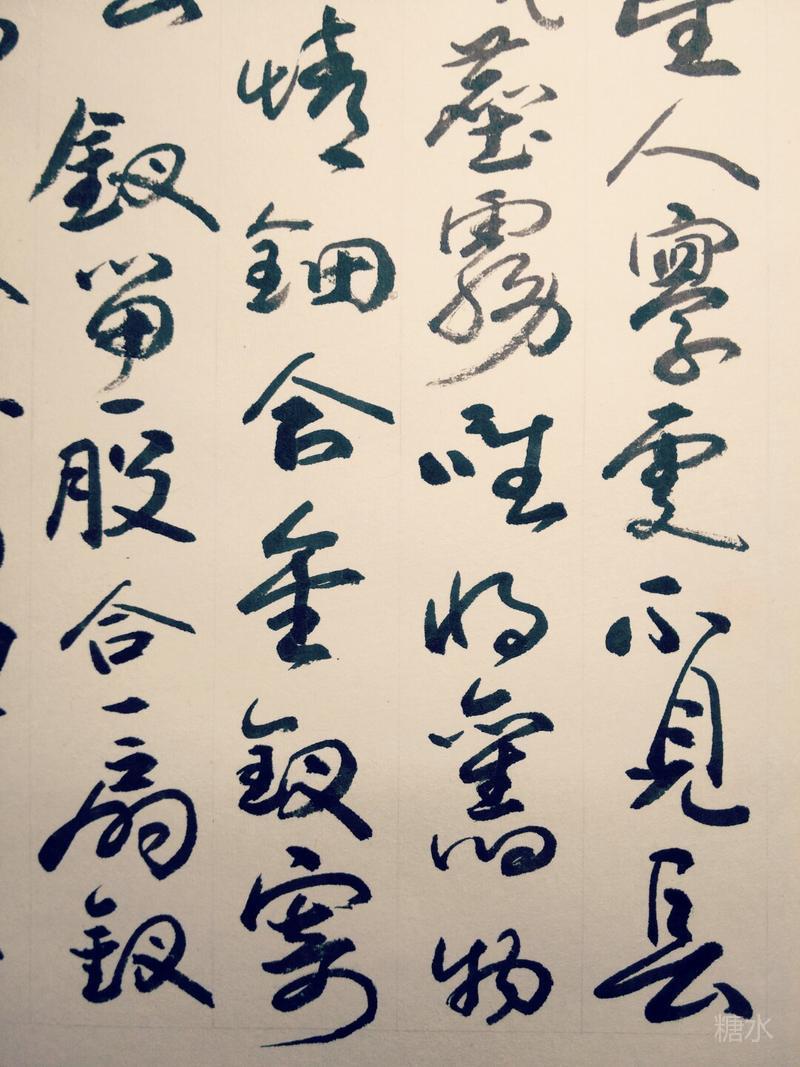 望人寰處不見長
塵霧唯將舊物
情鈿合金釵寄
釵留一股合一扇釵
糖水